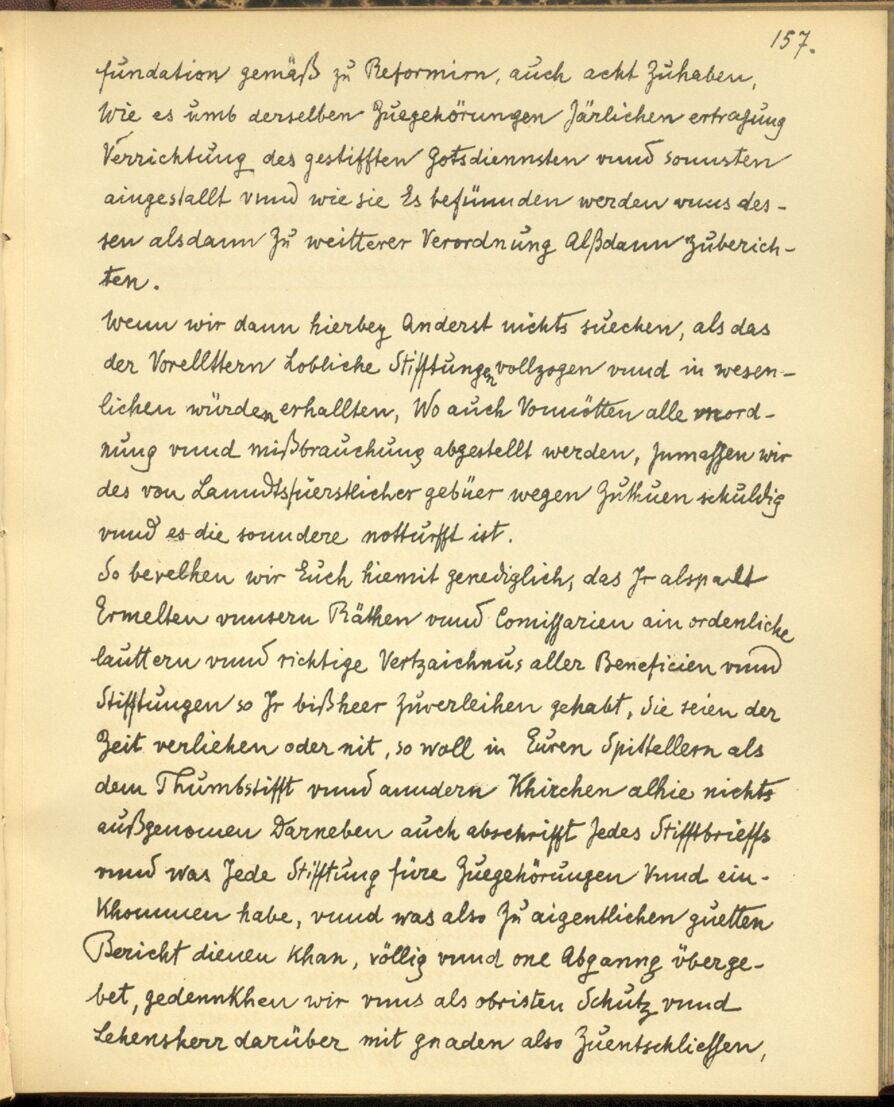 157.
fundation gemäß zu Reformirn, auch acht Zuhaben,
Wie es umb derselben Zuegehörungen Järlichen ertragung
Verrichtung des gestifften Gotsdiennsten vnnd sonnsten
aingestallt vnnd wie sie Es befünnden werden vnns des-
sen alsdann Zu weitterer Verordnung Alßdann Zuberich-
ten.
Wenn wir dann hierbey Anderst nichts suechen, als das
der Vorellttern Lobliche Stifftungen vollzogen vnnd in wesen-
lichen würden erhallten, Wo auch Vonnötten alle vnord-
nung vnnd mißbrauchung abgestellt werden, Jnmassen wir
des von Lanndtsfüerstlicher gebüer wegen Zuthuen schuldig
vnnd es die sonndere notturfft ist.
So bevelhen wir Euch hiemit genediglich, das Jr alspalt
Ermelten vnnsern Räthen vnnd Comissarien ain ordenliche
lauttern vnnd richtige Vertzaichnus aller Beneficien vnnd
Stifftungen so Jr bißheer Zuverleihen gehabt, Sie seien der
Zeit verliehen oder nit, so woll in Euren Spittellern als
dem Thumbstifft vnnd anndern Khirchen alhie nichts
außgenomen Darneben auch abschrifft Jedes Stifftbrieffs
vnnd was Jede Stifftung füre Zuegehörungen Vnnd ein-
Khommen habe, vnnd was also Zu aigentlichen guetten
Bericht dienen Khan, völlig vnnd one Abganng überge-
bet, gedennkhen wir vnns als obristen Schutz vnnd
Lehensherr darüber mit gnaden also Zuentschliessen,